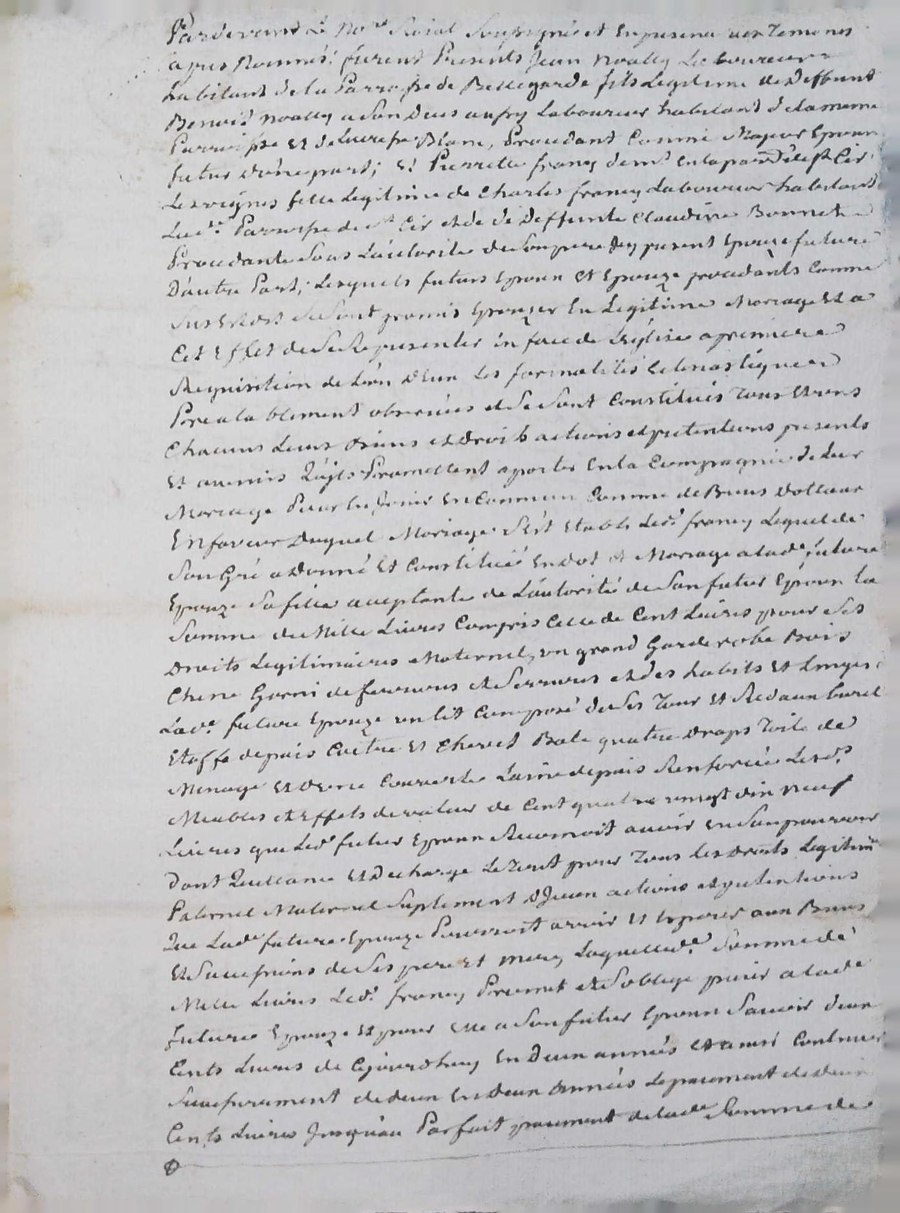 Pardevant Le No.re Roial Soussigné et En presence des Temoins
après Nommés; furent Presents Jean Noally Laboureur
habitant de la Parroisse de Bellegarde fils Legitime de Deffunt
Benoit Noally a Son Dieu Laboureur habitant de la meme
Parroisse et de Blanc, Procedant Comme Majeur Epoux
futur D'une part; Et Pierrette françy dem.t En la par. de st Cir
Les vignes fille Legitime de Charles françy Laboureur habitant
Lad.e Parroisse de st Cir et de Deffunte Claudine Bonnet
Procedante Sous L'autorité de Son pere Icy present Epouze future
D'autre Part; Lesquels futurs Epoux Et Epouze procedants Comme
Sus Est dit Se Sont promis Epouzer En Legitime Mariage Et a
Cet Effet de Se Representer en face de L'Eglise a premiere
Requisition de L'un D'Eux Les formalités Eclesiastiques
Prealablement observées et Se Sont Constitués Tous
Chacuns Leurs Biens et Droits actions et pretentions presents
Et avenirs qu'ils Promettent aporter En la Compagnie de Leur
Mariage Pour En Commun Comme de Biens Dottaux
En faveur Duquel Mariage S'est Etabli Led.t françy Lequel de
Son Gré a Donné Et Constitué En dot de Mariage a lad.e future
Epouze Sa fille acceptante de L'autorité de Son futur Epoux la
Somme de Mille Livres Compris Celle de Cent Livres pour Ses
Droits Legitimaires Maternels, un grand Garderobe Bois
Chene Garni de ferrures et Serrures et des habits Et Linges
Lad.e future Epouze un lit Composé de Ses Tour Et
Etoffe depuis Coitre Et Chevet Bale quatre Draps Toile de
Menage Et D'une Couverte Laine depuis Lesd.s
Meubles et Effets de valeur de Cent quatre vingt dix neuf
Livres que Led.t futur Epoux Reconnoit avoir En Son pouvoir
Dont Quittance Et Decharge Le Tout pour Tous Les Droits Legitim.es
Paternel Maternel Suplement D'Iceux actions et pretentions
Que Lad.e future Epouze Pourroit avoir Et Esperer aux Biens
Et Successions de Ses pere Et mere Laquelle d.e Somme de
Mille Livres Led.t françy Promet et S'oblige paier a lad.e
future Epouze Et pour Elle a Son futur Epoux Savoir deux
Cents Livres de Cejourdhuy En Deux années Et ainsi Continuer
Successivement de deux En Deux Années Le paiement de deux
Cents Livres Jusqu'au Parfait paiement de lad.e Somme de